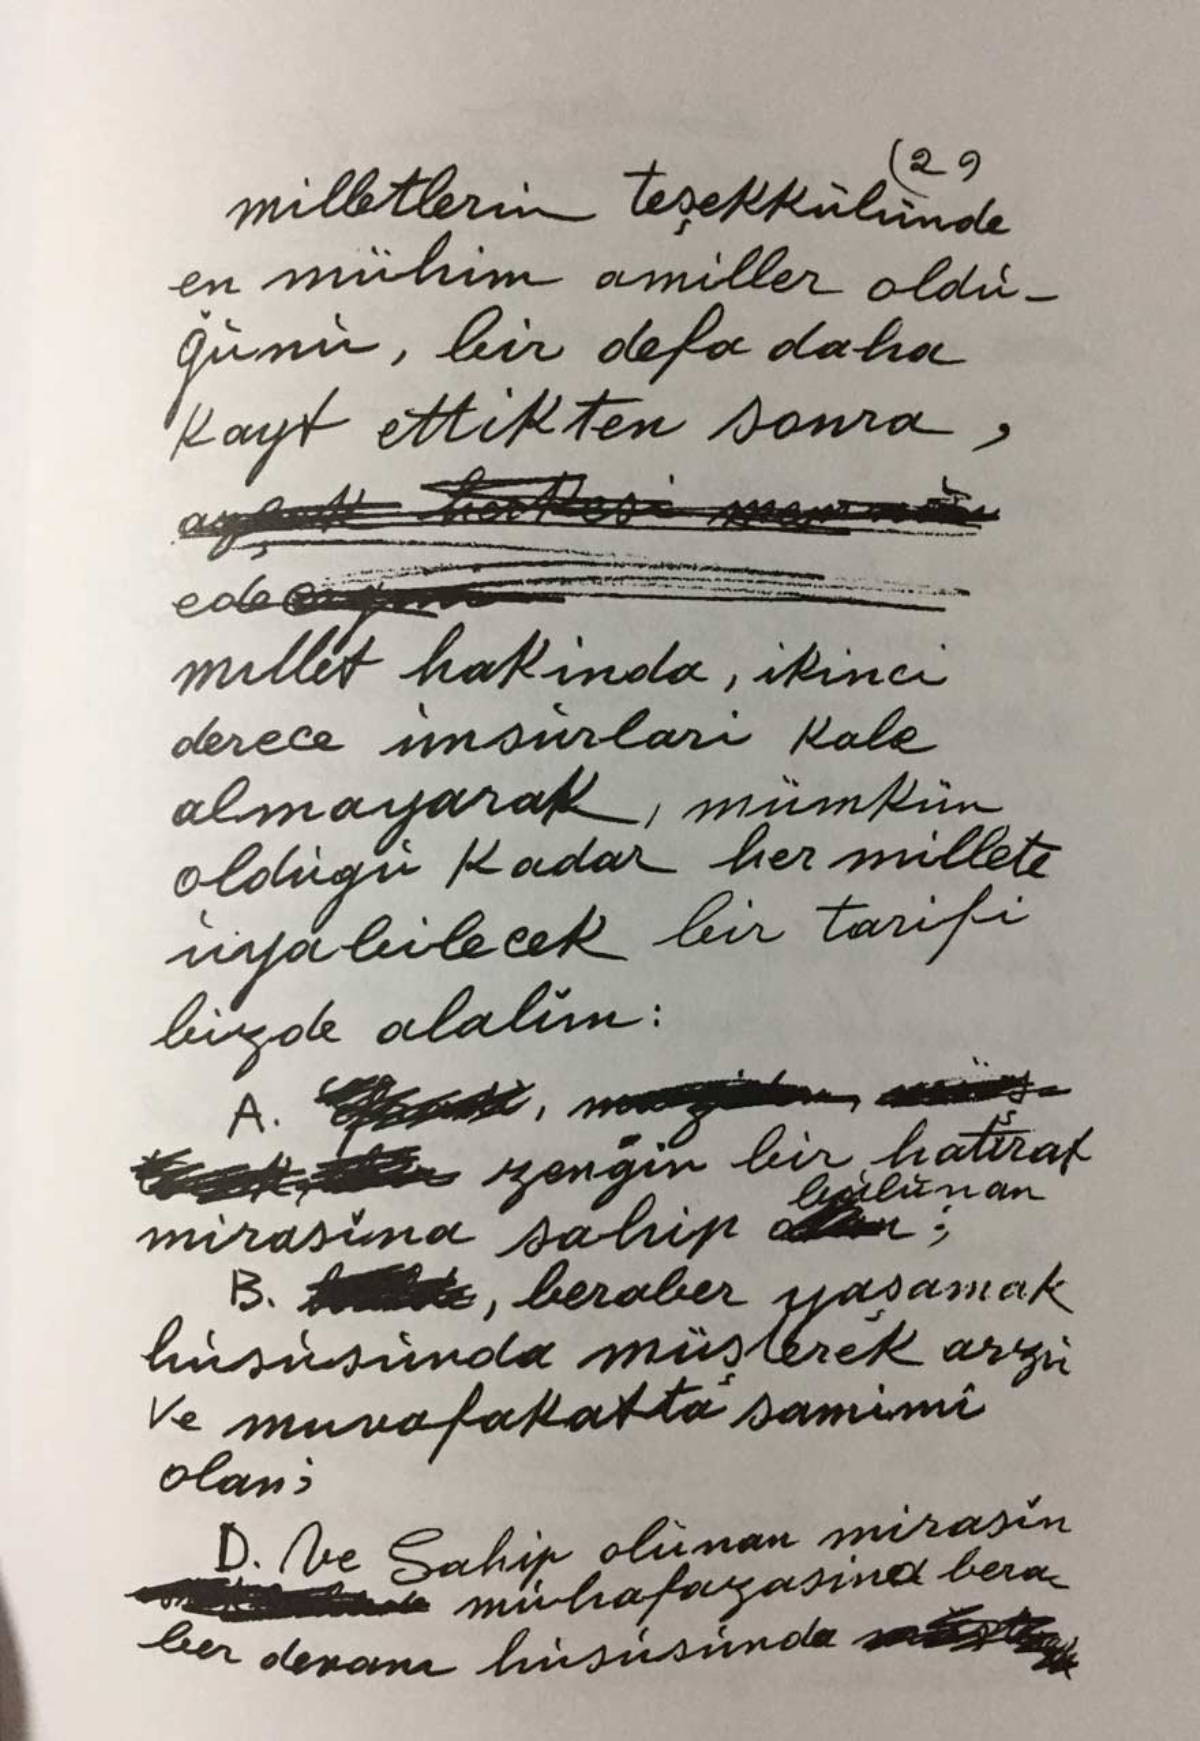 (29
milletlerin teşekkülünde
en mühim amiller oldu-
ğunu, bir defa daha
kayt ettikten sonra,
millet hakinda, ikinci
derece unsurlari kale
almayarak, mümkün
oldugu kadar her millete
uyabilecek bir tarifi
bizde alalim:
A.
zengin bir hatırat
bulunan
mirasına sahip ;
B. , beraber yaşamak
hususunda müşterek arzu
ve muvafakatta samimî
olan;
D. Ve Sahip olunan mirasın
muhafazasına bera-
ber devam hususunda